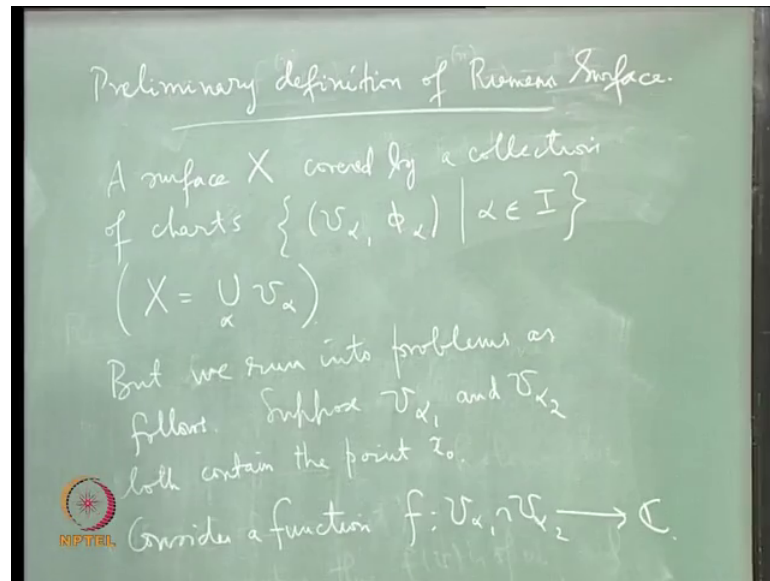 Preliminary definition of Riemann Surface.
A surface X covered by a collection
of charts { (U_α, ϕ_α) | α ∈ I }
( X = ∪_α U_α )
But we run into problems as
follows. Suppose U_α₁ and U_α₂
both contain the point z₀.
Consider a function f : U_α₁ ∩ U_α₂ ⟶ ℂ.
NPTEL